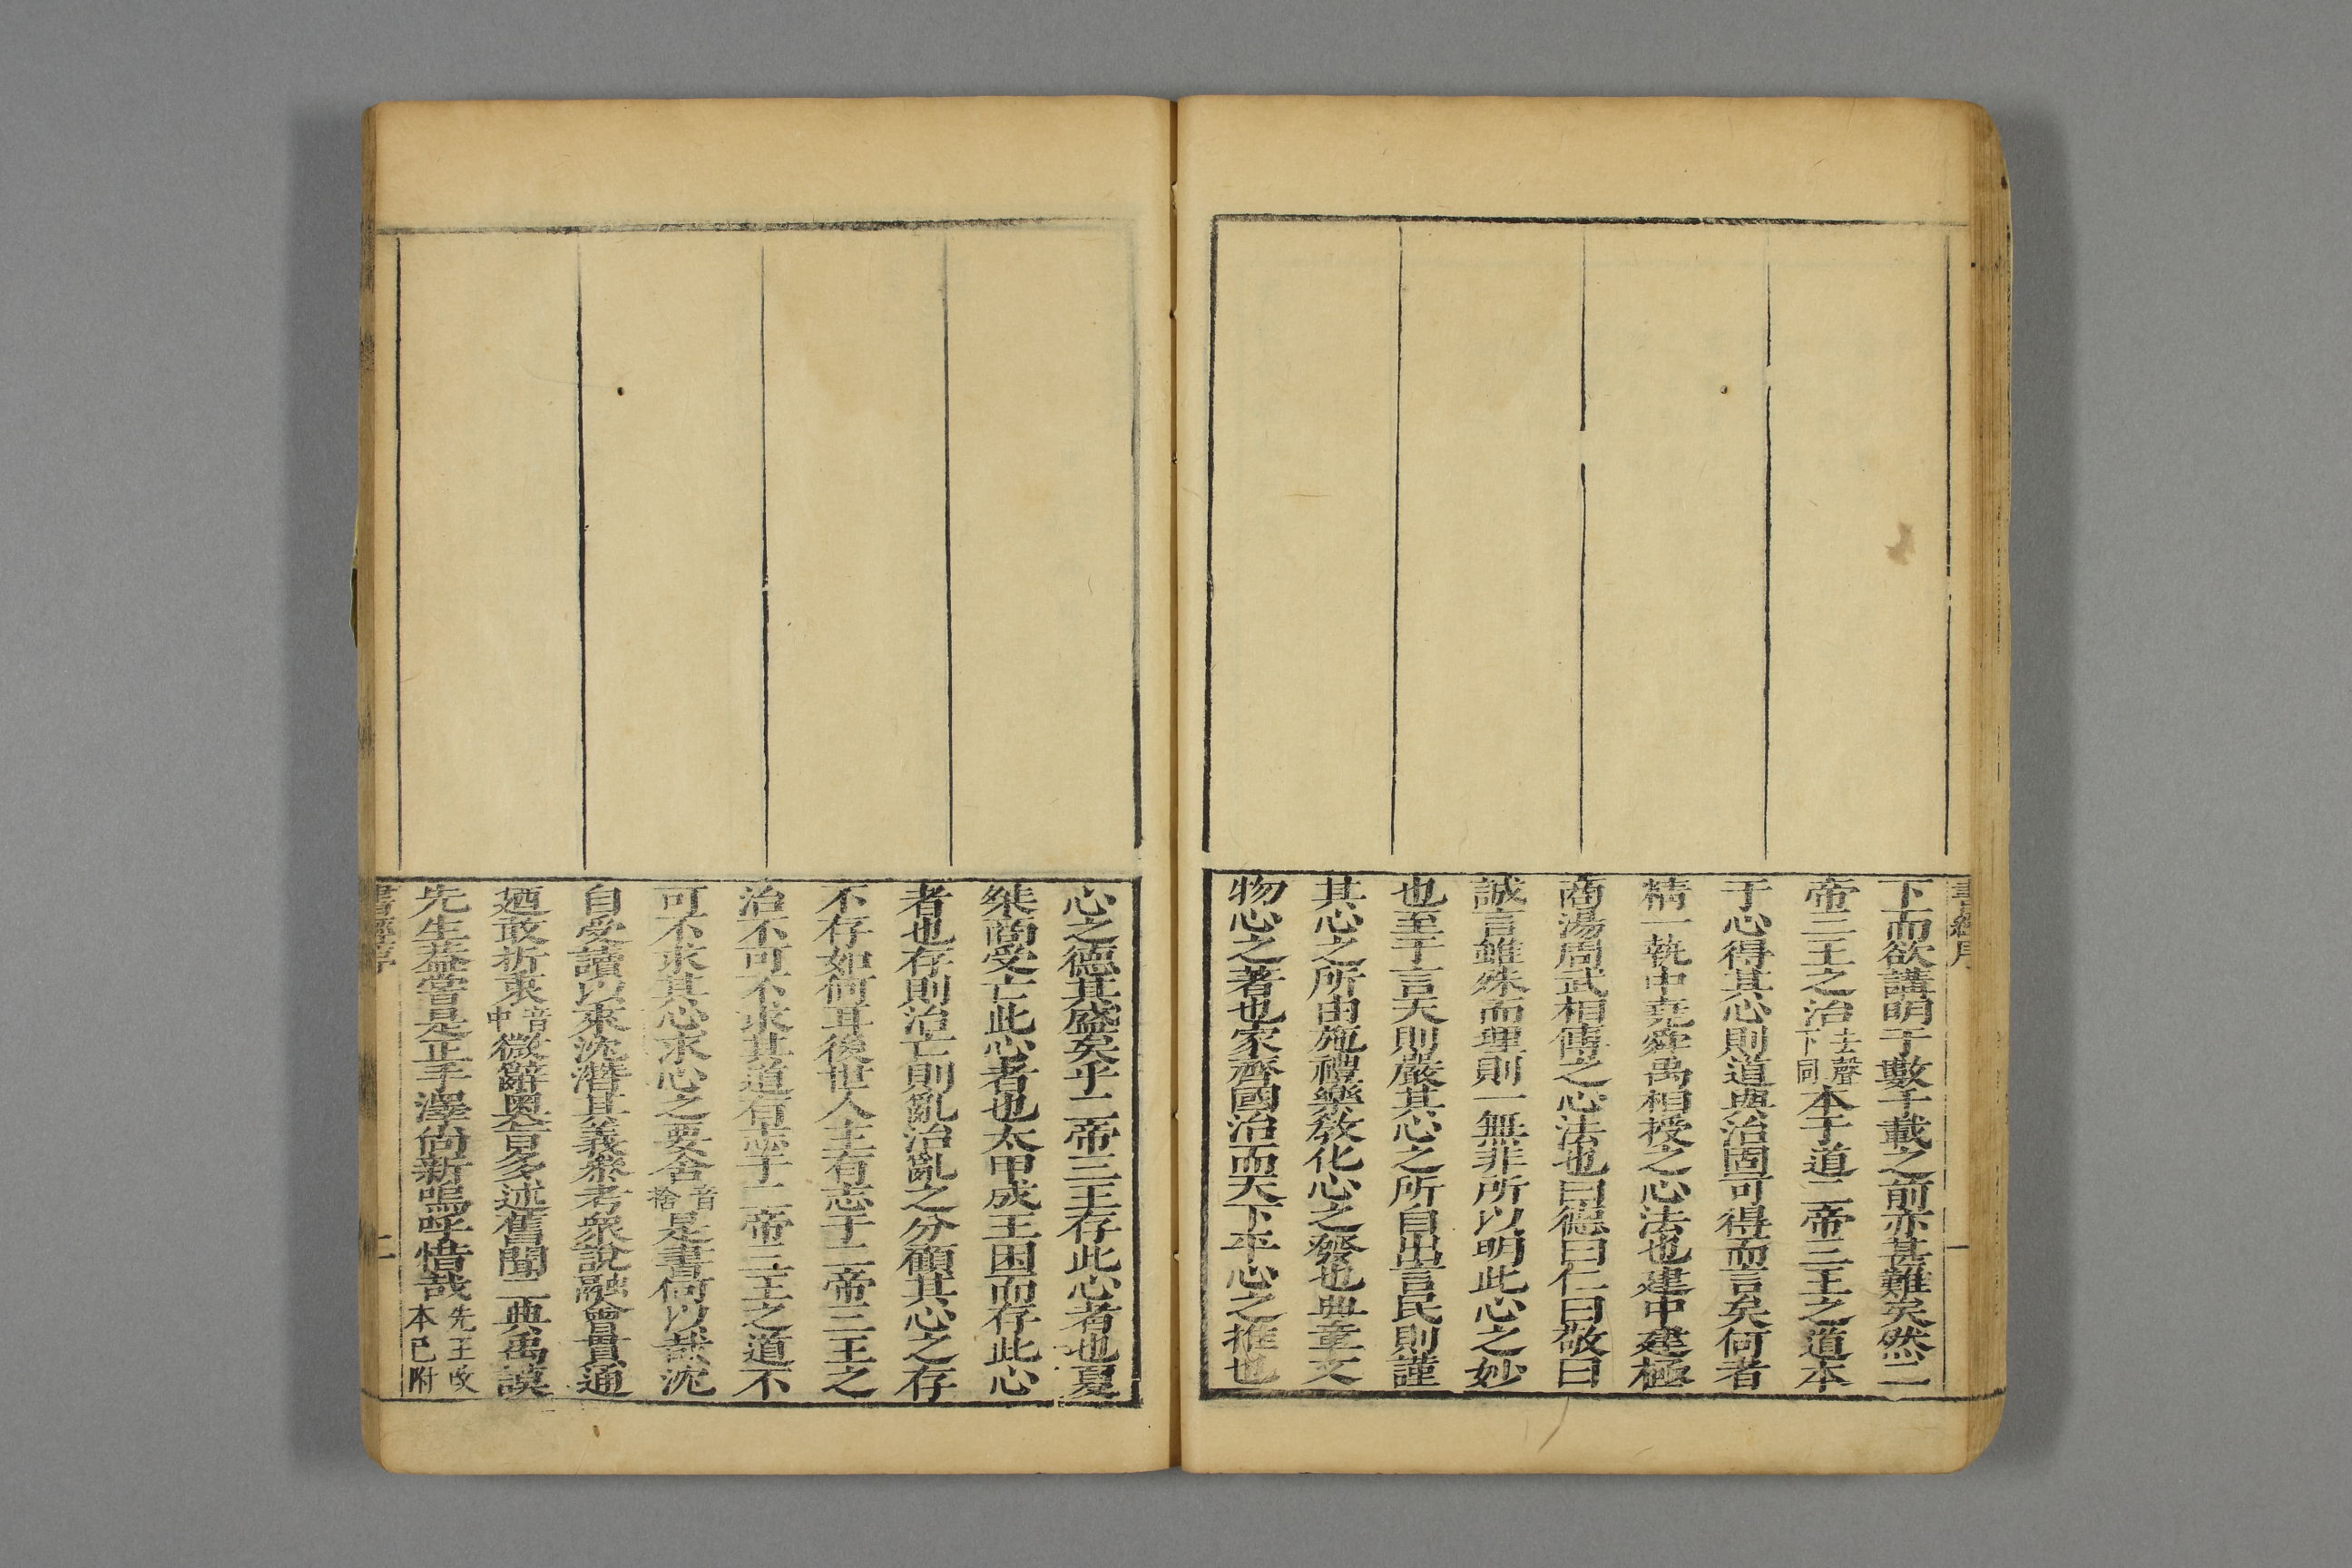 書經序
一
下而欲講明于數千載之前亦甚難矣然二
帝三王之治去聲下同本于道二帝三王之道本
于心得其心則道與治固可得而言矣何者
精一執中堯舜禹相授之心法也建中建極
商湯周武相傳之心法也曰德曰仁曰敬曰
誠言雖殊而理則一無非所以明此心之妙
也至于言天則嚴其心之所自出言民則謹
其心之所由施禮樂敎化心之發也典章文
物心之著也家齊國治而天下平心之推也
心之德其盛矣乎二帝三王存此心者也夏
桀商受亡此心者也太甲成王困而存此心
者也存則治亡則亂治亂之分顧其心之存
不存如何耳後世人主有志于二帝三王之
治不可不求其道有志于二帝三王之道不
可不求其心求心之要舍音捨是書何以哉沈
自受讀以來沈潛其義參考衆說融會貫通
廼敢折衷音中微辭奧旨多述舊聞二典禹謨
先生葢嘗是正手澤尙新嗚呼惜哉先王改本已附
書經序
二